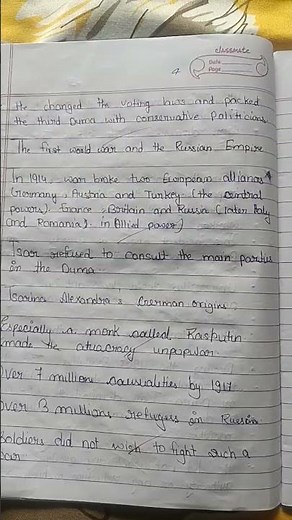 classmate
Date
Page
4
He changed the voting laws and packed
the third Duma with conservative politicians
The first world war and the Russian Empire
In 1914, war broke two European alliances
Germany, Austria and Turkey (the central
powers). France, Britain and Russia (later Italy
and Romania). in Allied power)
Tsar refused to consult the main parties
in the Duma
Tsarina Alexandra's German origins
Especially a monk called Rasputin
made the atuacracy unpopular
Over 7 millions causualities by 1917
over 3 millions refugees in Russia
soldiers did not wish to fight such a
war